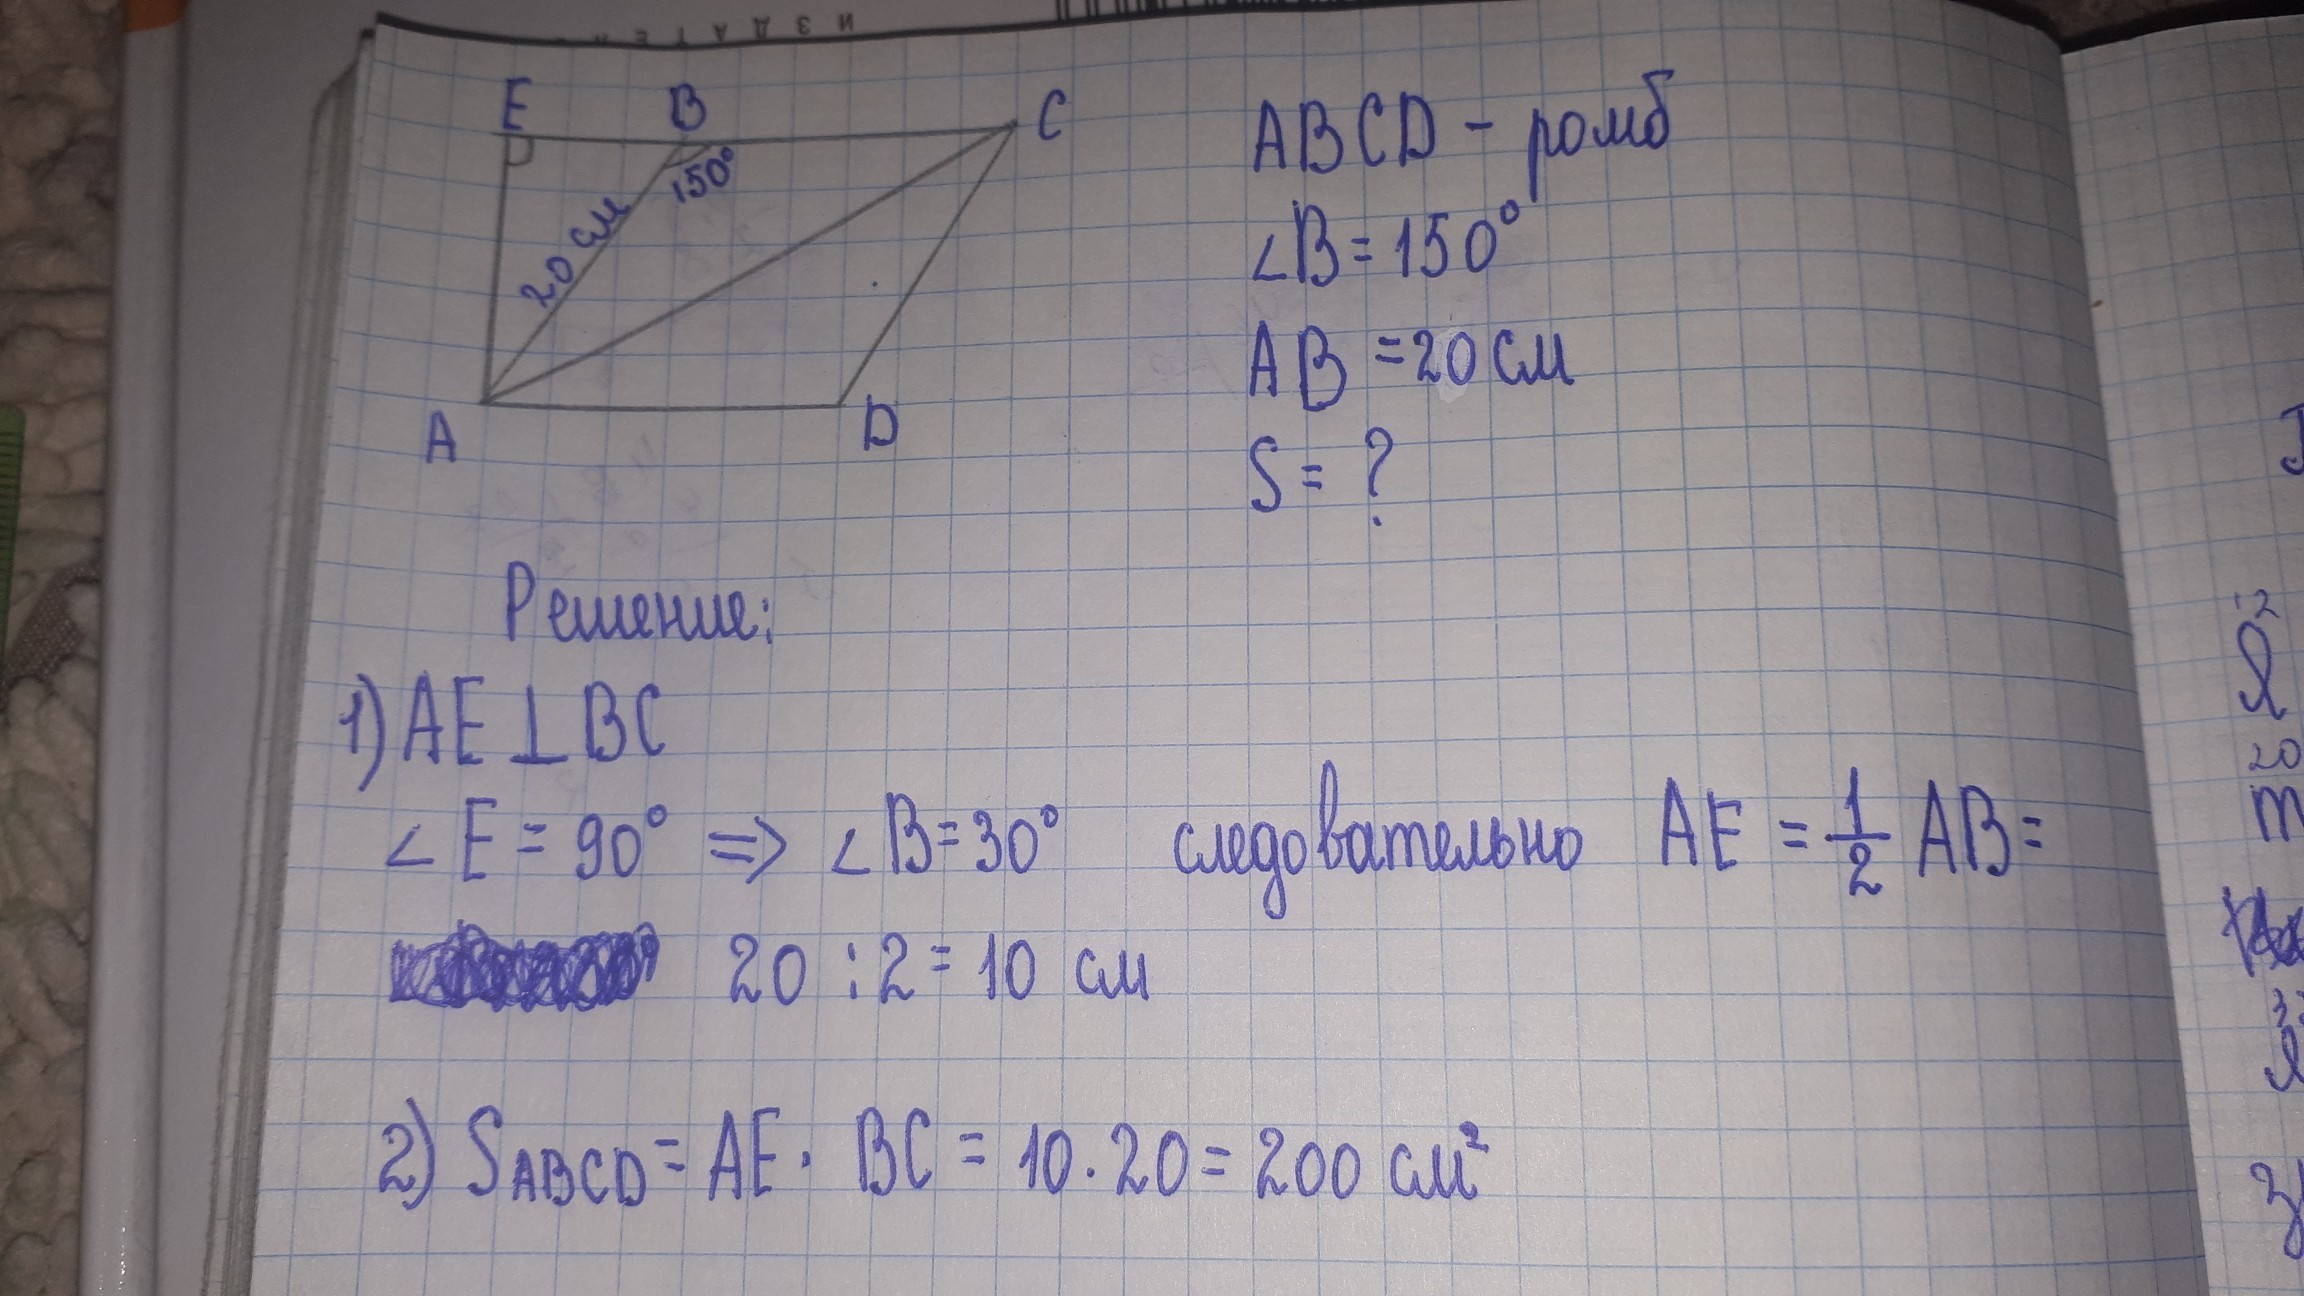 ИЗДАТЕЛ
E B C
150°
20 см
A D
ABCD - ромб
∠B = 150°
AB = 20 см
S = ?
Решение:
1) AE ⊥ BC
∠ E = 90° => ∠ B = 30° следовательно AE = 1/2 AB =
20 : 2 = 10 см
2) SABCD = AE · BC = 10 · 20 = 200 см²
20